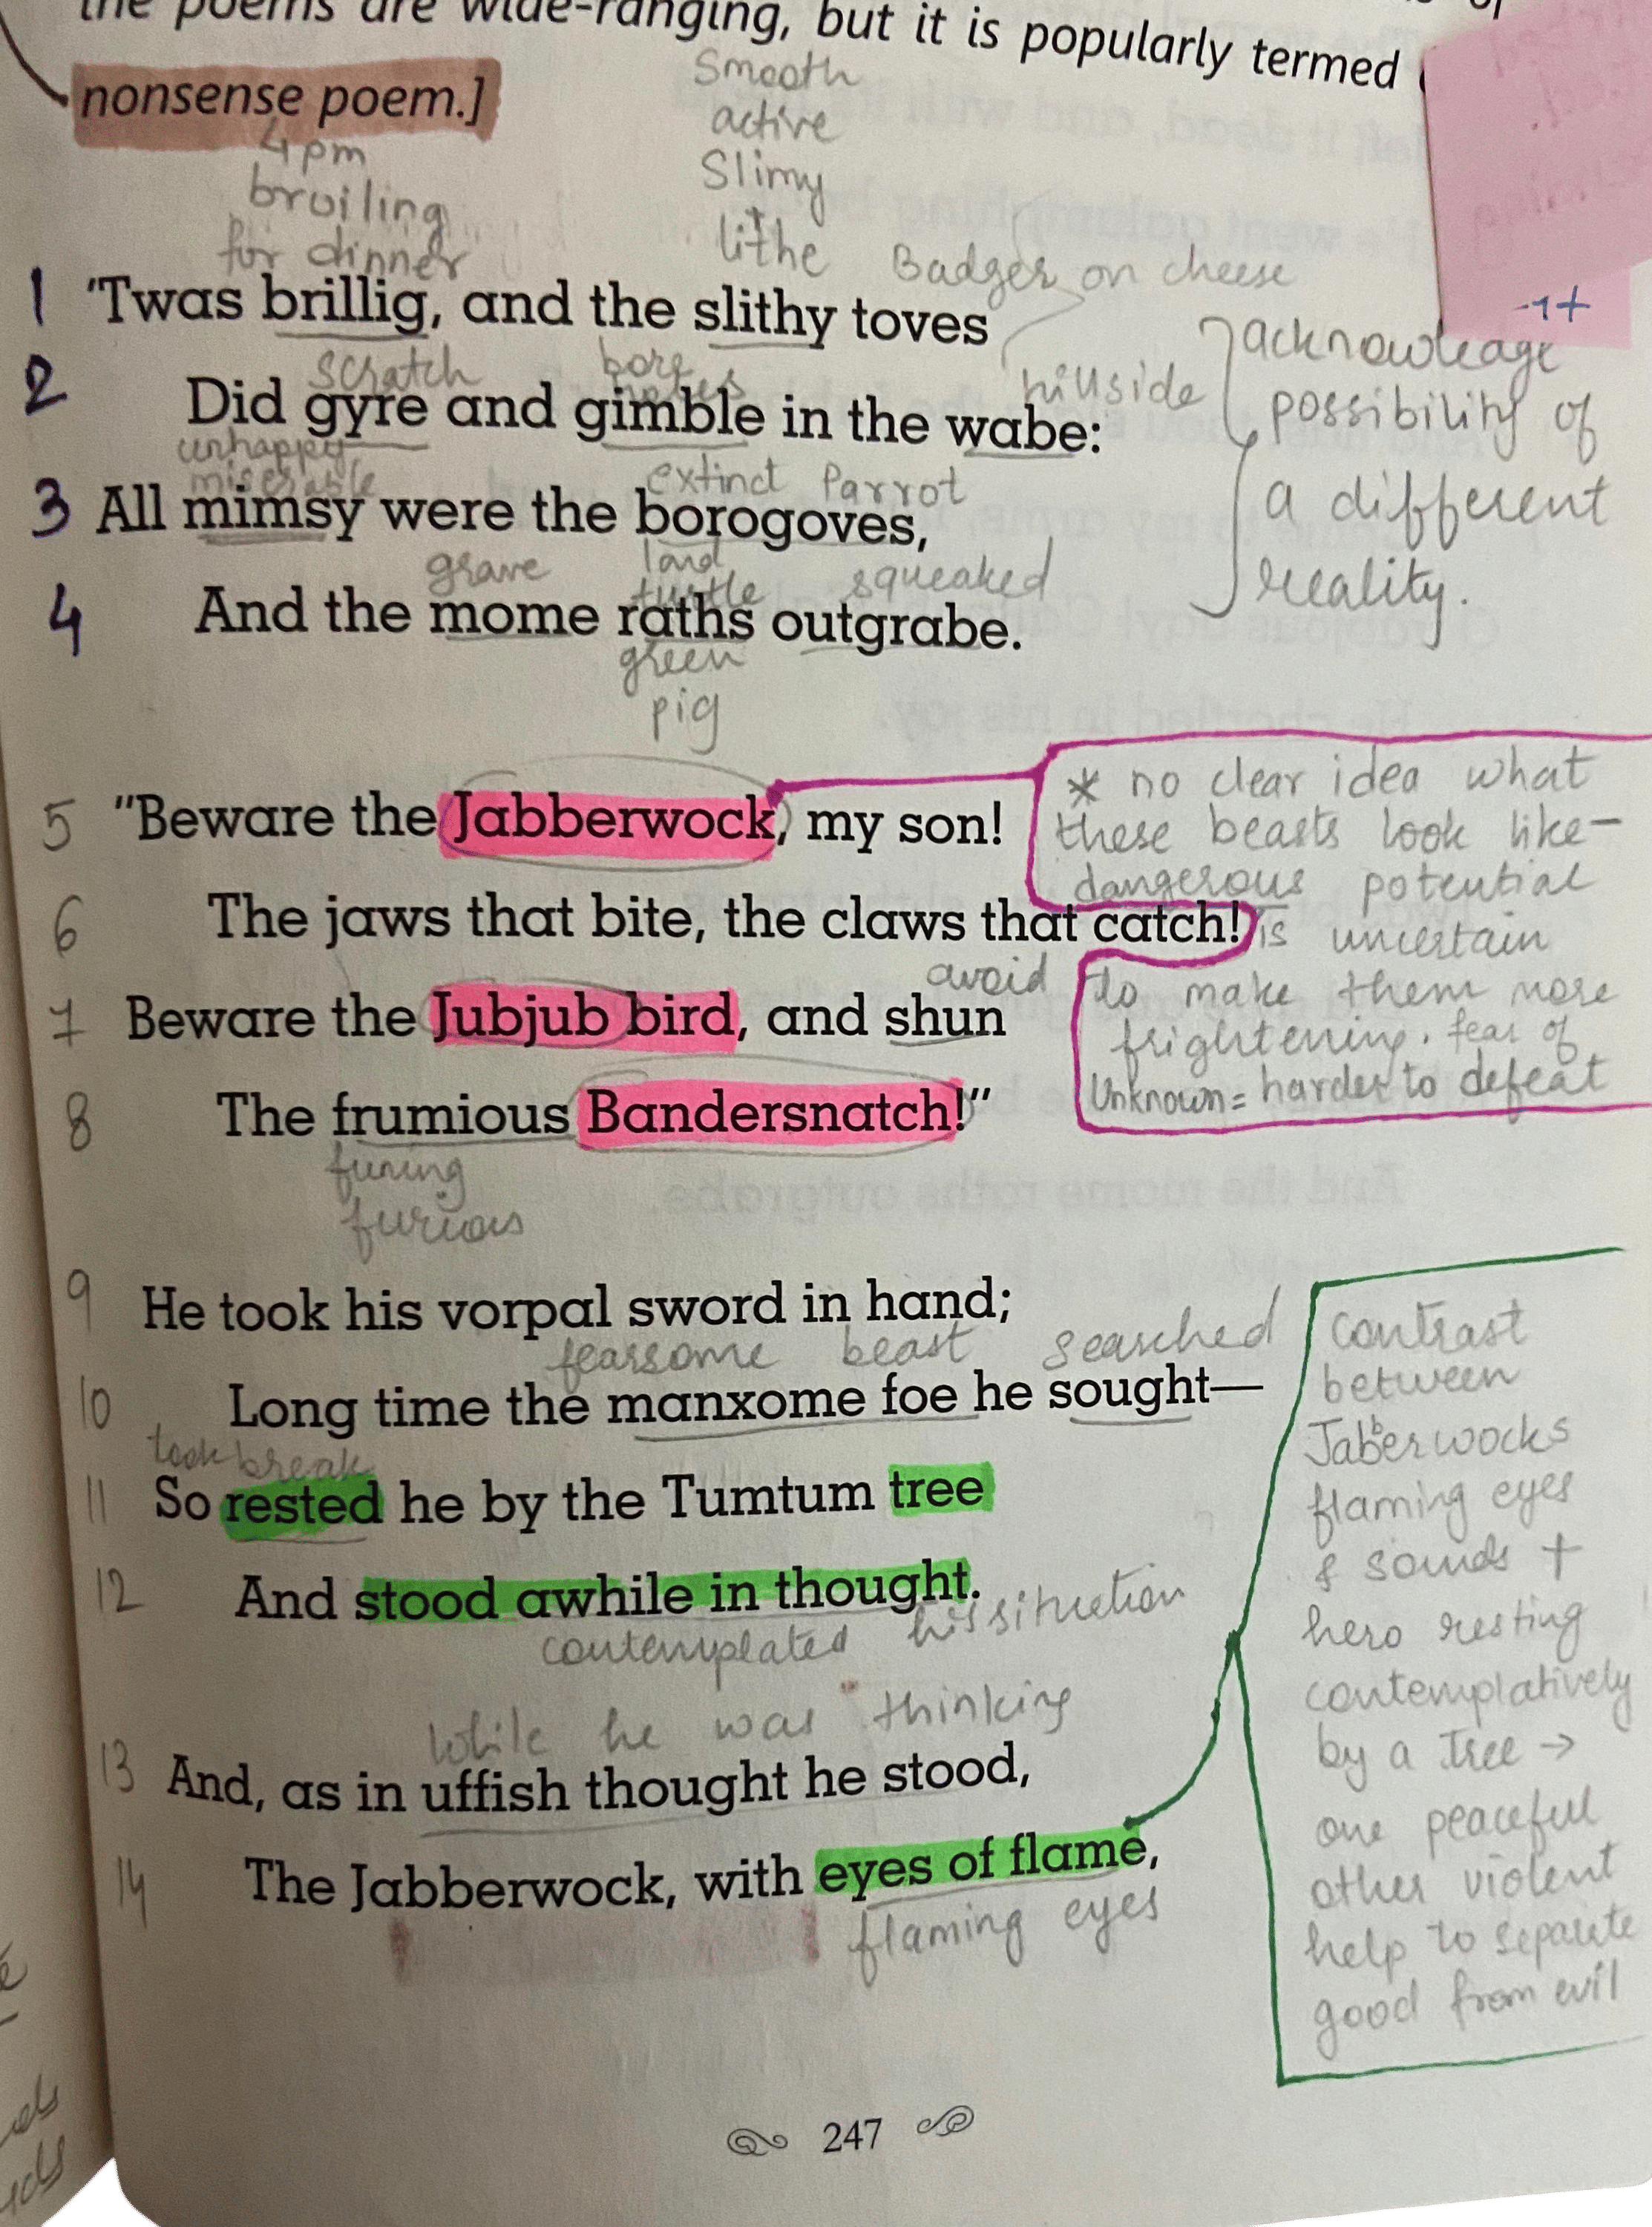 the poems are wide-ranging, but it is popularly termed
nonsense poem.]
4pm
broiling
for dinner
Smooth
active
Slimy
lithe
Badger on cheese
1 'Twas brillig, and the slithy toves
scratch bore holes hillside
2 Did gyre and gimble in the wabe:
unhappy
miserable
extinct Parrot
3 All mimsy were the borogoves,
grave land turtle squeaked
4 And the mome raths outgrabe.
green
pig
-1+
acknowledge
possibility of
a different
reality.
5 "Beware the Jabberwock, my son!
6 The jaws that bite, the claws that catch!
avoid
7 Beware the Jubjub bird, and shun
8 The frumious Bandersnatch!"
fuming
furious
* no clear idea what
these beasts look like–
dangerous potential
is uncertain
to make them more
frightening. fear of
Unknown = harder to defeat
9 He took his vorpal sword in hand;
fearsome beast searched
10 Long time the manxome foe he sought—
took break
11 So rested he by the Tumtum tree
12 And stood awhile in thought.
contemplated his situation
While he was thinking
13 And, as in uffish thought he stood,
14 The Jabberwock, with eyes of flame,
flaming eyes
contrast
between
Jabberwocks
flaming eyes
& sounds +
hero resting
contemplatively
by a tree →
one peaceful
other violent
help to separate
good from evil
247